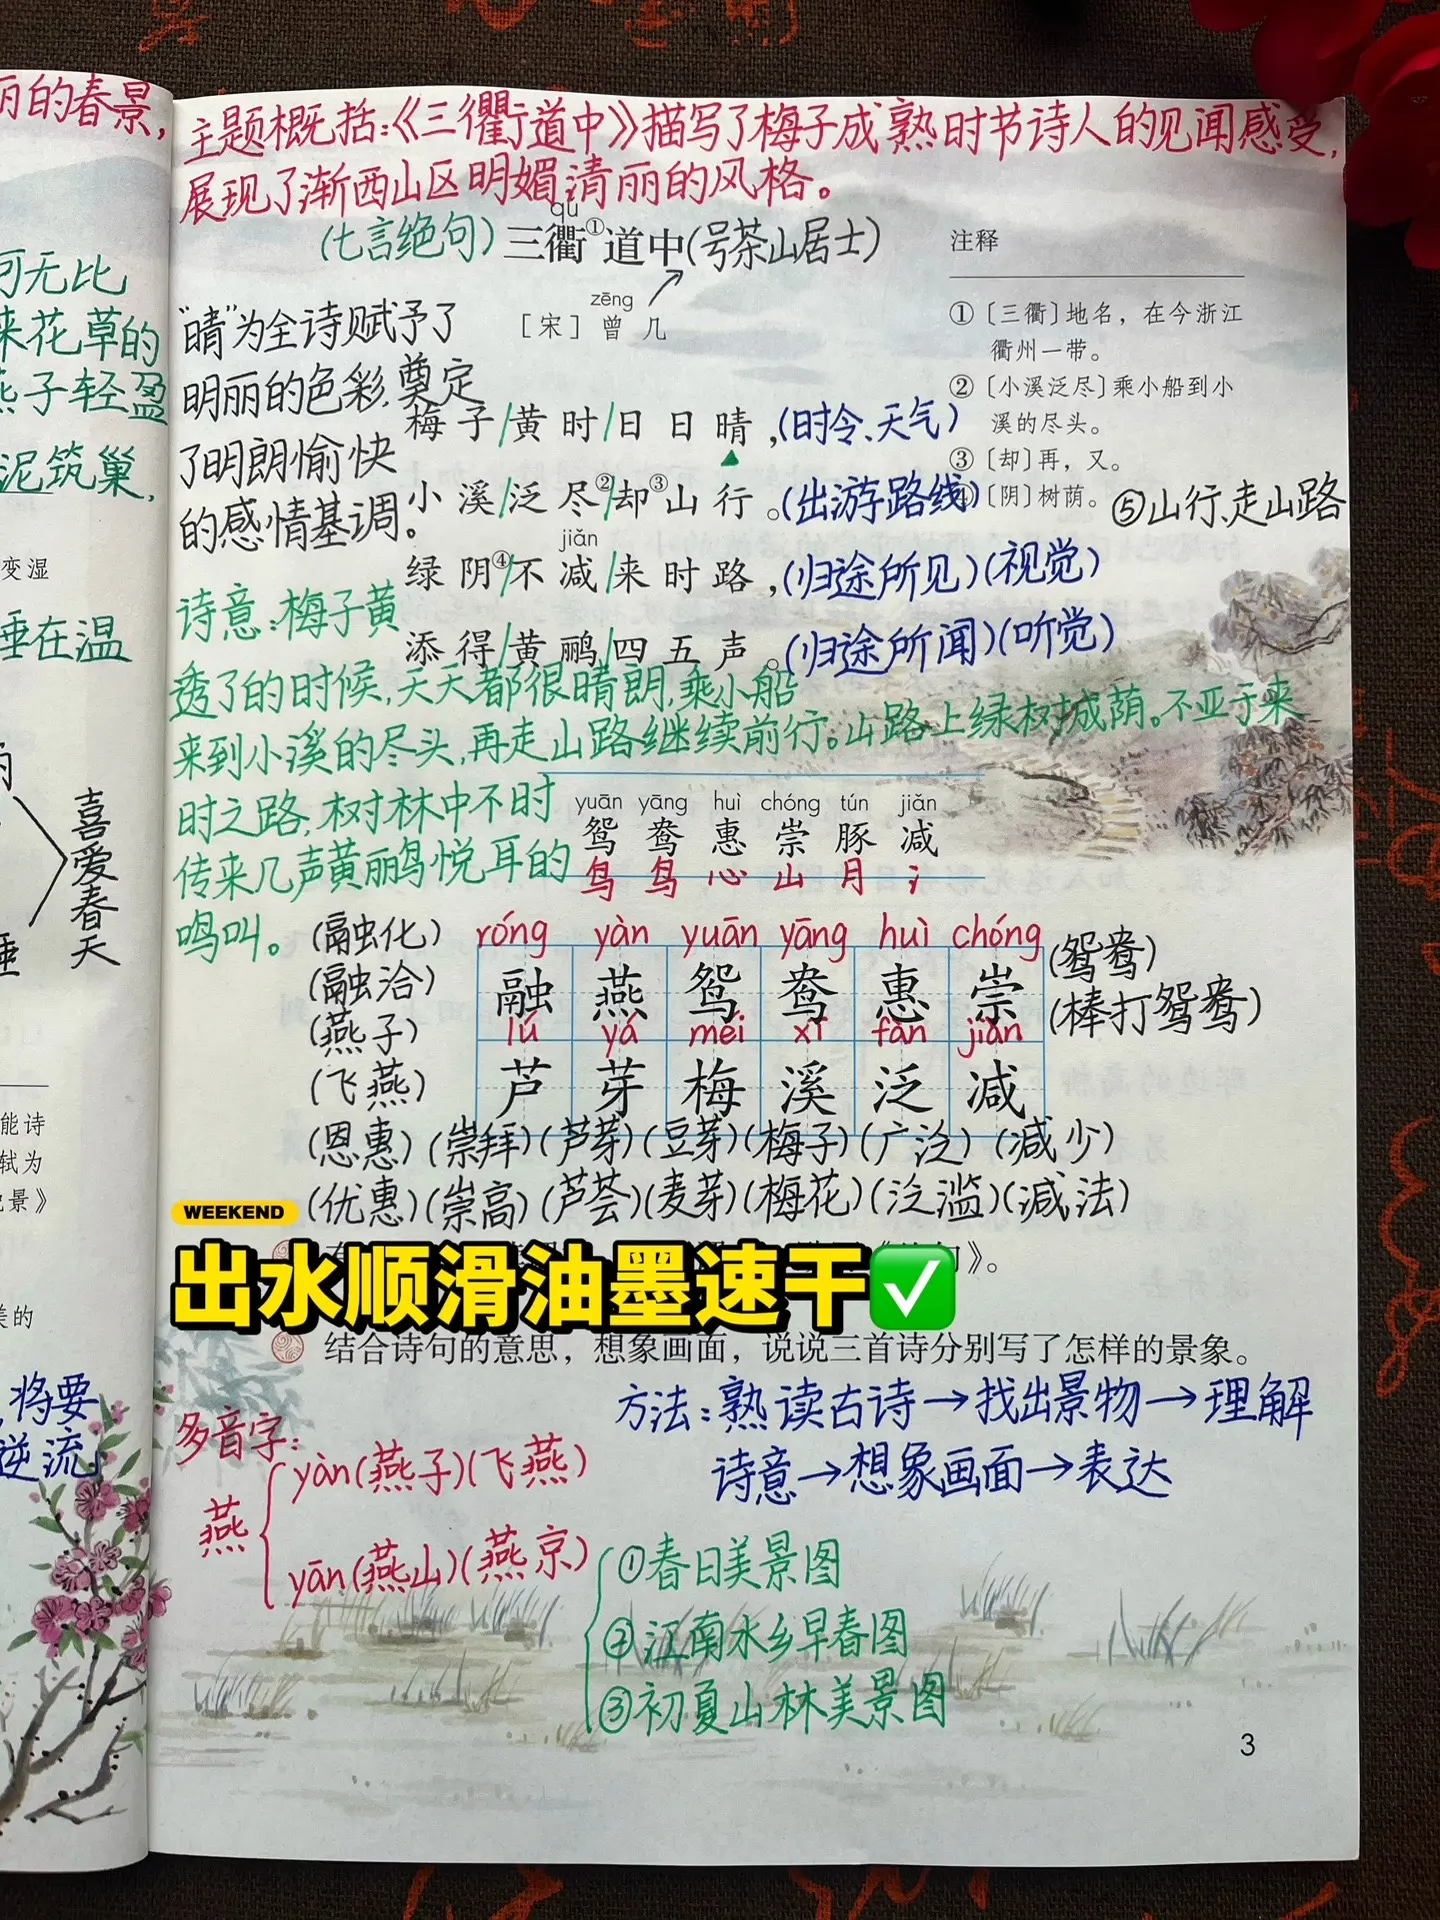 丽的春景，
可无比
来花草的
燕子轻盈
泥筑巢，
变湿
睡在温
喜爱春天
能诗
轼为
景》
美的
，将要
逆流
主题概括：《三衢道中》描写了梅子成熟时节诗人的见闻感受，
展现了浙西山区明媚清丽的风格。
qú
（七言绝句）三衢①道中（号茶山居士）
zēng
［宋］曾几
注释
①〔三衢〕地名，在今浙江
衢州一带。
②〔小溪泛尽〕乘小船到小
溪的尽头。
③〔却〕再，又。
④〔阴〕树荫。
⑤山行、走山路
“晴”为全诗赋予了
明丽的色彩，奠定
了明朗愉快
的感情基调。
梅子/黄时/日日晴，（时令、天气）
小溪/泛尽②/却③山行。（出游路线）
jiǎn
绿阴④/不减/来时路，（归途所见）（视觉）
添得/黄鹂/四五声。（归途所闻）（听觉）
诗意：梅子黄
透了的时候，天天都很晴朗，乘小船
来到小溪的尽头，再走山路继续前行。山路上绿树成荫。不亚于来
时之路，树林中不时
传来几声黄鹂鸟悦耳的
鸣叫。
yuān yāng huì chóng tún jiǎn
鸳 鸯 惠 崇 豚 减
鸟 鸟 心 山 月 冫
róng yàn yuān yāng huì chóng
融 燕 鸳 鸯 惠 崇
lú yá méi xī fàn jiǎn
芦 芽 梅 溪 泛 减
（融化）
（融洽）
（燕子）
（飞燕）
（鸳鸯）
（棒打鸳鸯）
（恩惠）（崇拜）（芦芽）（豆芽）（梅子）（广泛）（减少）
（优惠）（崇高）（芦荟）（麦芽）（梅花）（泛滥）（减法）
WEEKEND
出水顺滑油墨速干
句》。
结合诗句的意思，想象画面，说说三首诗分别写了怎样的景象。
方法：熟读古诗→找出景物→理解
诗意→想象画面→表达
多音字：
燕
yàn（燕子）（飞燕）
yān（燕山）（燕京）
①春日美景图
②江南水乡早春图
③初夏山林美景图
3